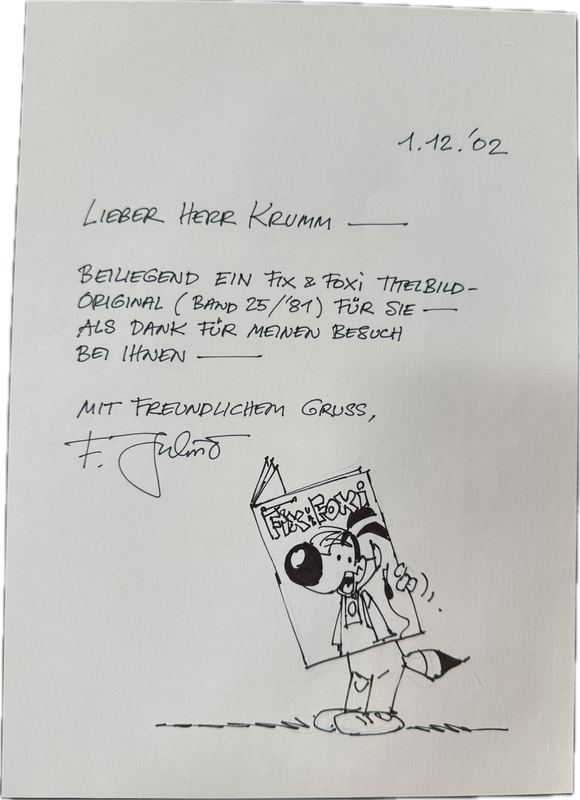 1.12.'02
LIEBER HERR KRUMM —
BEILIEGEND EIN FIX & FOXI TITELBILD-
ORIGINAL (BAND 25/'81) FÜR SIE —
ALS DANK FÜR MEINEN BESUCH
BEI IHNEN —
MIT FREUNDLICHEM GRUSS,
F.
FIX & FOXI